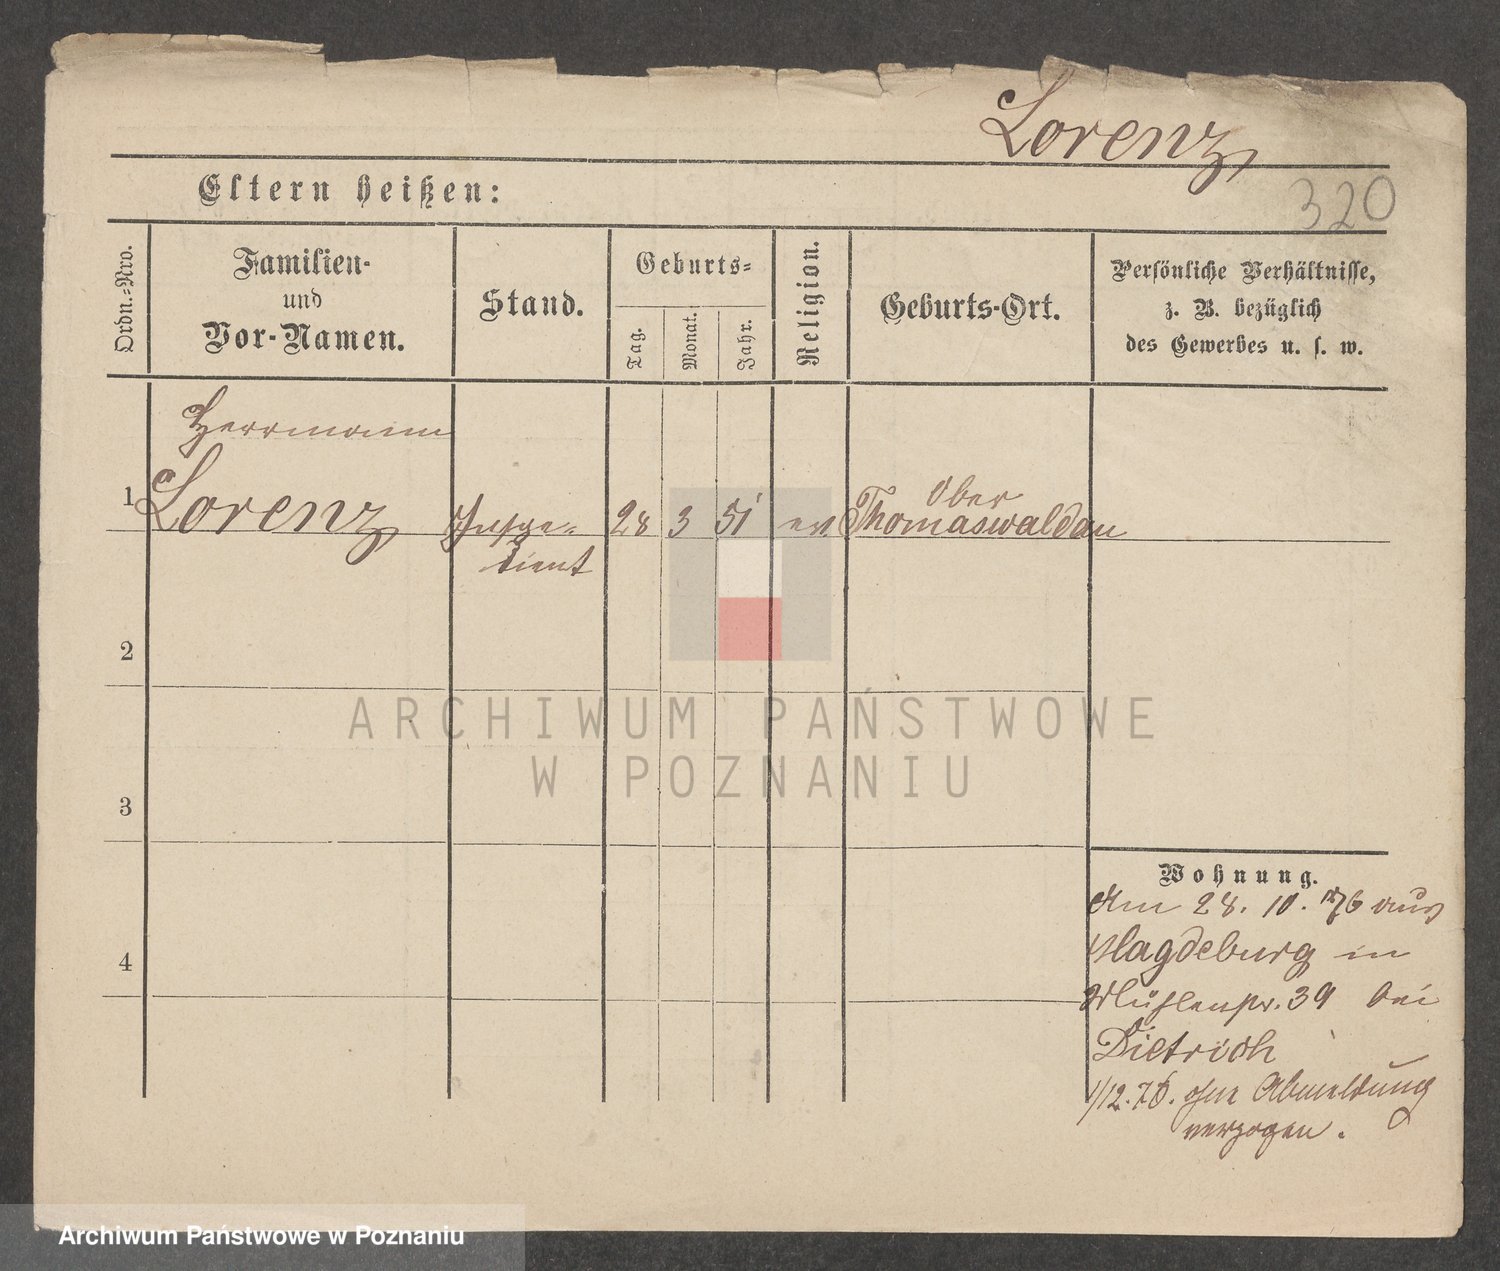 Lorenz
320
Eltern heißen:
Ordn.-Nro.
Familien-
und
Vor-Namen.
Stand.
Geburts-
Tag.
Monat.
Jahr.
Religion.
Geburts-Ort.
Persönliche Verhältnisse,
z. B. bezüglich
des Gewerbes u. s. w.
Herrmann
1 Lorenz
28 3 51 ev.
Ober
Thomaswaldau
2
3
4
Wohnung.
Am 28. 10. 76 aus
Magdeburg in
Mühlenstr. 39 bei
Dietrich
1/12. 76. ohne Abmeldung
verzogen.
ARCHIWUM PAŃSTWOWE
W POZNANIU
Archiwum Państwowe w Poznaniu